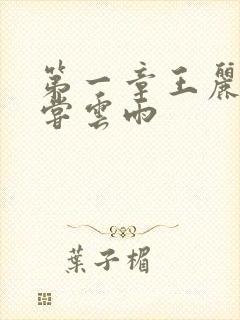 第一章王麗
嘗雲雨
葉子楣